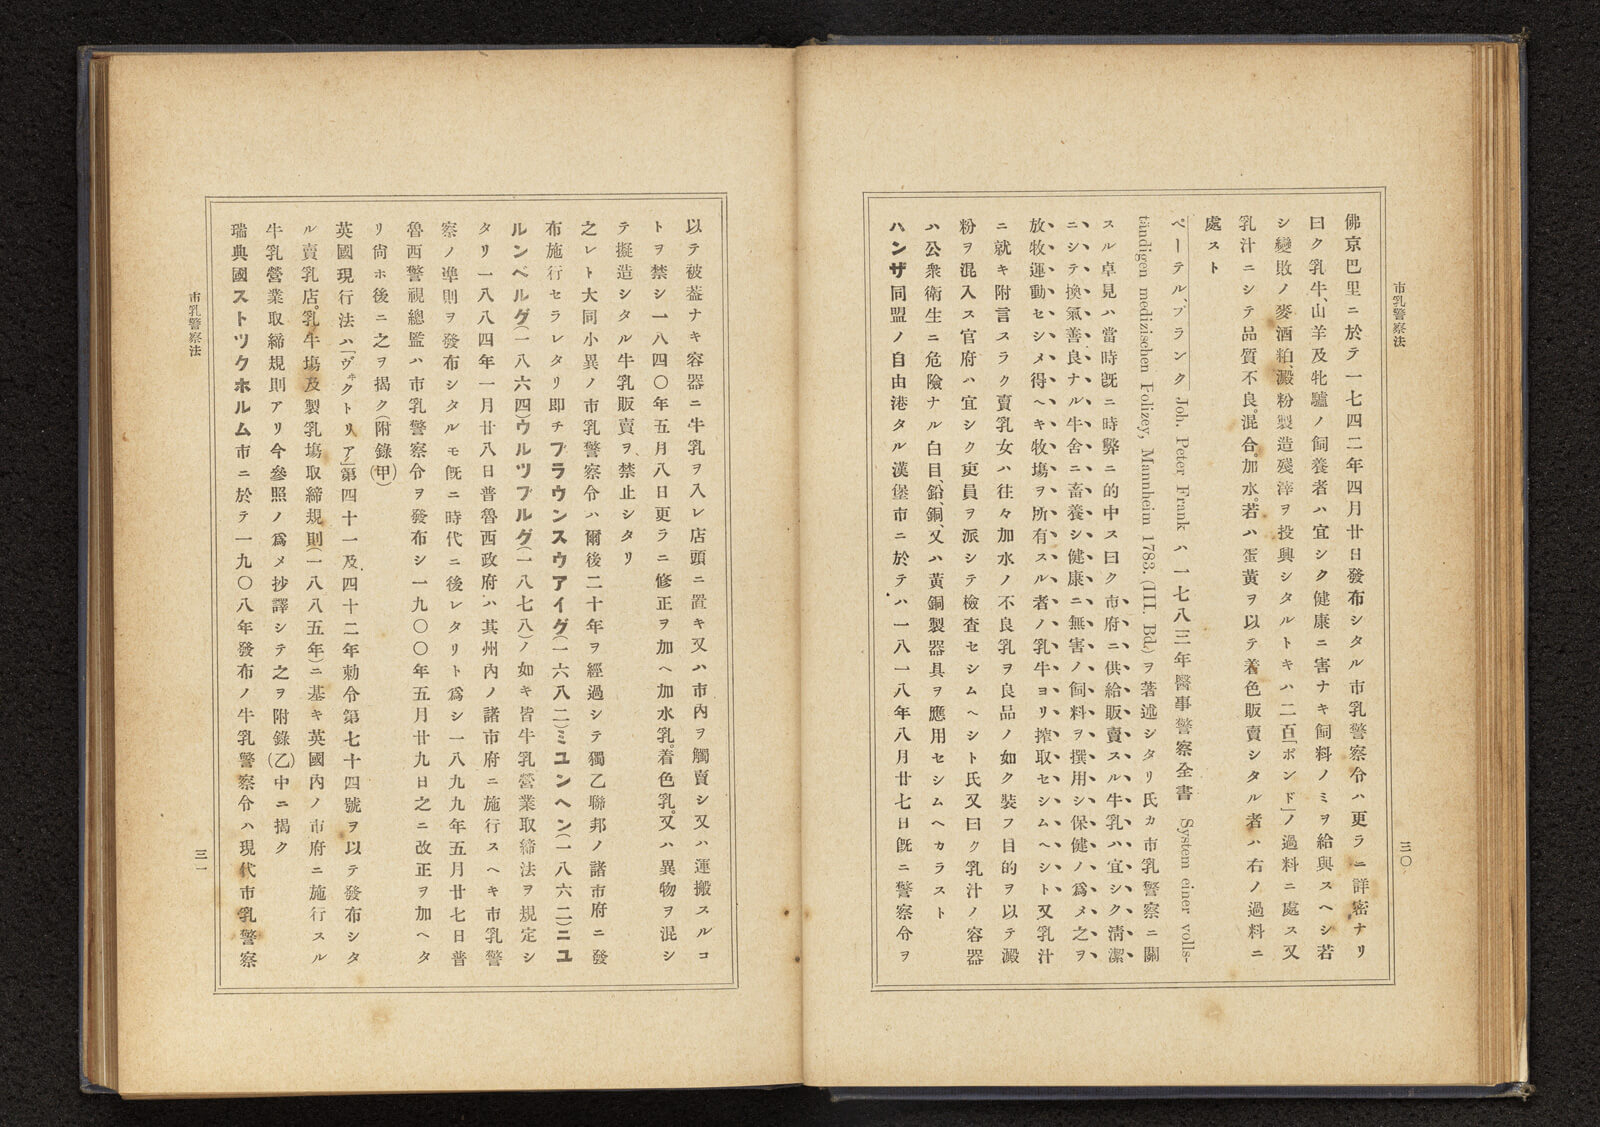 市乳警察法
三〇
佛京巴里ニ於テ一七四二年四月廿日發布シタル市乳警察令ハ更ラニ詳密ナリ
曰ク乳牛、山羊及牝驢ノ飼養者ハ宜シク健康ニ害ナキ飼料ノミヲ給與スヘシ若
シ變敗ノ麥酒粕、澱粉製造殘滓ヲ投與シタルトキハ二百「ポンド」ノ過料ニ處ス又
乳汁ニシテ品質不良。混合。加水。若ハ蛋黃ヲ以テ着色販賣シタル者ハ右ノ過料ニ
處スト
ペーテル、フランク Joh. Peter Frank ハ一七八三年醫事警察全書 System einer volls-
tändigen medizischen Polizey, Mannheim 1783. (III. Bd.)ヲ著述シタリ氏カ市乳警察ニ關
スル卓見ハ當時旣ニ時弊ニ的中ス曰ク市府ニ供給販賣スル牛乳ハ宜シク淸潔
ニシテ換氣善良ナル牛舍ニ畜養シ健康ニ無害ノ飼料ヲ撰用シ保健ノ爲メ之ヲ
放牧運動セシメ得ヘキ牧塲ヲ所有スル者ノ乳牛ヨリ搾取セシムヘシト又乳汁
ニ就キ附言スラク賣乳女ハ往々加水ノ不良乳ヲ良品ノ如ク裝フ目的ヲ以テ澱
粉ヲ混入ス官府ハ宜シク吏員ヲ派シテ檢査セシムヘシト氏又曰ク乳汁ノ容器
ハ公衆衛生ニ危險ナル白目、鉛、銅、又ハ黃銅製器具ヲ應用セシムヘカラスト
ハンザ同盟ノ自由港タル漢堡市ニ於テハ一八一八年八月廿七日旣ニ警察令ヲ
以テ被葢ナキ容器ニ牛乳ヲ入レ店頭ニ置キ又ハ市內ヲ觸賣シ又ハ運搬スルコ
トヲ禁シ一八四〇年五月八日更ラニ修正ヲ加ヘ加水乳。着色乳。又ハ異物ヲ混シ
テ擬造シタル牛乳販賣ヲ禁止シタリ
之レト大同小異ノ市乳警察令ハ爾後二十年ヲ經過シテ獨乙聯邦ノ諸市府ニ發
布施行セラレタリ卽チブラウンスウアイグ(一六八二)ミユンヘン(一八六二)ニユ
ルンベルグ(一八六四)ウルツブルグ(一八七八)ノ如キ皆牛乳營業取締法ヲ規定シ
タリ一八八四年一月廿八日普魯西政府ハ其州內ノ諸市府ニ施行スヘキ市乳警
察ノ準則ヲ發布シタルモ旣ニ時代ニ後レタリト爲シ一八九九年五月廿七日普
魯西警視總監ハ市乳警察令ヲ發布シ一九〇〇年五月廿九日之ニ改正ヲ加ヘタ
リ尙ホ後ニ之ヲ揭ク(附錄(甲)
英國現行法ハ「ヴヰクトリア」第四十一及四十二年勅令第七十四號ヲ以テ發布シタ
ル賣乳店。乳牛塲及製乳塲取締規則(一八八五年)ニ基キ英國內ノ市府ニ施行スル
牛乳營業取締規則アリ今參照ノ爲メ抄譯シテ之ヲ附錄(乙)中ニ揭ク
瑞典國ストツクホルム市ニ於テ一九〇八年發布ノ牛乳警察令ハ現代市乳警察
市乳警察法
三一